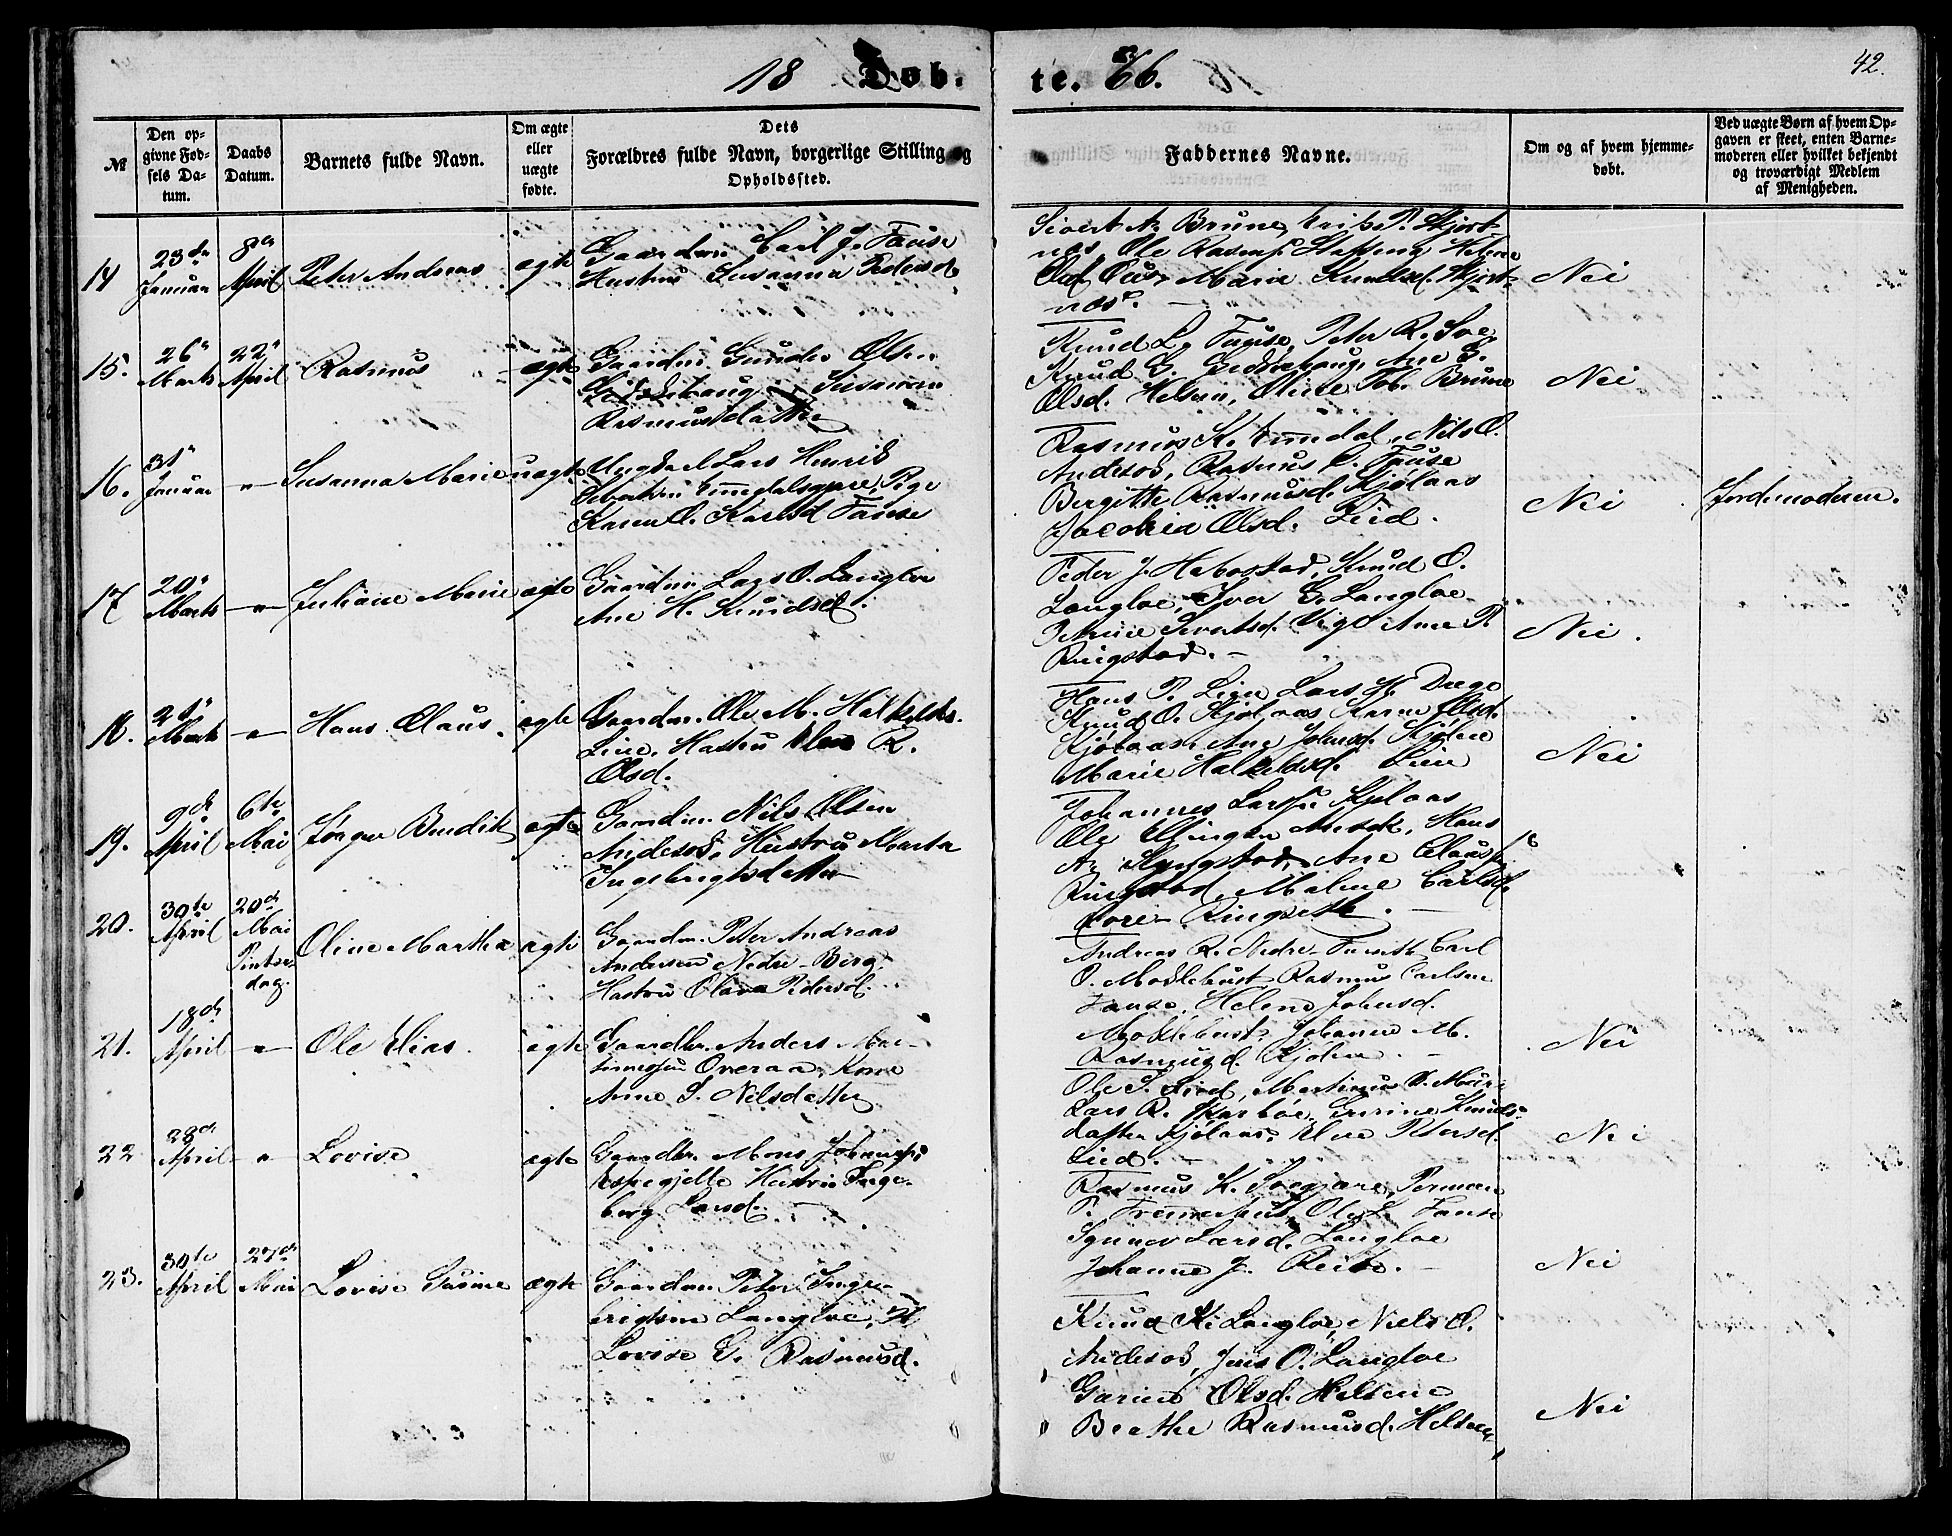 18 Døb-
te. 66.
42.
№
Den op-
givne Fød-
sels Da-
tum.
Daabs
Datum.
Barnets fulde Navn.
Om ægte
eller
uægte
fødte.
Dets
Forældres fulde Navn, borgerlige Stilling og
Opholdssted.
Faddernes Navne.
Om og af hvem hjemme-
døbt.
Ved uægte Børn af hvem Op-
gaven er skeet, enten Barne-
moderen eller hvilket bekjendt
og troværdigt Medlem
af Menigheden.
14
23de
Januar
8de
April
Peter Andreas
ægte
Gaardm. Carl J. Fause
Hustru Susanna Pedersd.
Sivert A. Brune, P. Hjort-
næs Ole Rasmus. Helene
Marie Knudsd. Hjort-
næs.
Nei
15.
26
Marts
22
April
Rasmus
ægte
Gaardm. Gunder Olsen
Susanna
Rasmusdatter
Knud L. Fause, Peter R. Soe
Knud G. Ane E.
Olsd. Helsem, Oline Tob. Brune
Nei
16.
31
Januar
"
Susanna Marie
uægte
Ungkarl Lars Henrik
Pige
Karen O. Karlsd Fause
Rasmus K. Nils O.
Andesød, Rasmus C. Fause
Bergitte Rasmusd. Kjølaas
Jacobia Olsd. Lied.
Nei
Jordemoderen.
17
20
Marts
"
Juliane Marie
ægte
Gaardm. Lars O. Langløe
Ane H. Knudsd.
Peder J. Habostad, Knud O.
Langløe, Iver G. Langløe
Sivertsd. Vige Ane P.
Ringstad.
Nei.
18.
21
Marts
"
Hans Olaus.
ægte
Gaardm. Ole M. Halkelds.
Lien, Hustru R.
Olsd.
Hans P. Lien Lars H. Drege
Knud O. Kjølaas Karen Olsd.
Kjølaas Ane Johnsd. Kjølen
Marie Halkeldsd. Lien
Nei
19.
9de
April
6te
Mai
Jørgen Bendik
ægte
Gaardm. Nils Olsen
Andesød, Hustru Marta
Ingebrigtsdatter
Johannes Larssen Kjølaas
Ole Hans
A. Ane Claus
Ringstad, Malene Carlsd.
Ringseth.
20.
30te
April
20de
Mai
Pintse-
dag.
Oline Martha
ægte
Gaardm. Peter Andreas
Andersen Nedre-Berg,
Hustru Olava Pedersd.
Andreas R. Nedre- Carl
O. Moklebust Rasmus Carlsen
Fause, Helene Johnsd.
Moklebust, Johanne M.
Rasmusd. Kjølen.
Nei
21.
18de
April
"
Ole Elias.
ægte
Gaardbr. Anders Mar-
tinussen Overaa, Kone
Anne S. Nilsdatter
Ole S. Lied, Martinus
Lars R. Gurine Knuds-
datter Kjølaas, Pedersd.
Lied.
Nei
22
28de
April
"
Lovise
ægte
Gaardbr. Mons Johannes.
Espegjelte Hustru Inge-
borg Larsd.
Rasmus K.
P. Ole L. Fause
Synnev Larsd. Langløe
Johanne J.
Nei
23.
30te
April
27de
Mai
Lovise Gusine
ægte
Gaardm. Peter Inge-
brigtsen Langløe, H
Lovise E. Rasmusd.
Knud K. Langløe, Niels O.
Andesød, Jens O. Langløe
Gurine Olsd. Helsem
Beathe Rasmusd. Helsem
Nei